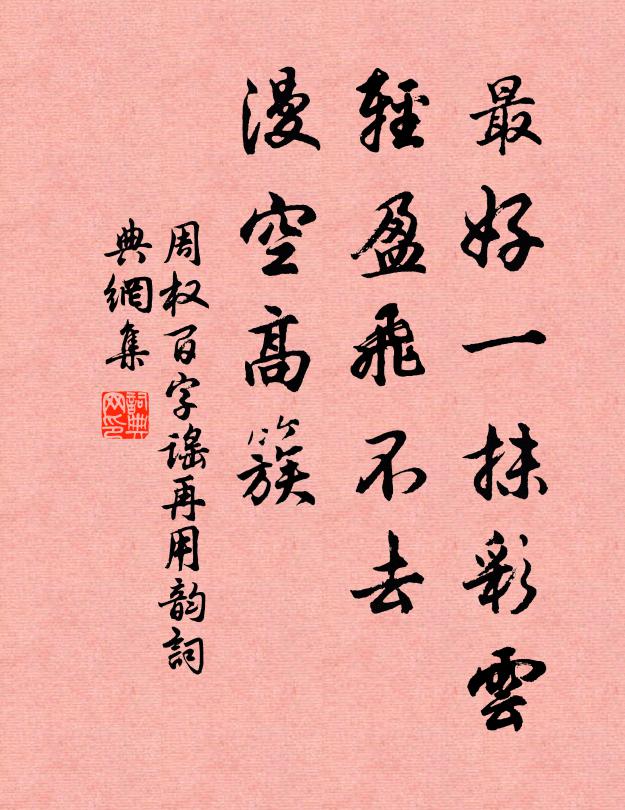 最好一抹彩雲
輕盈飛不去
漫空高簇
周权百字謠再用韵詞
典網集
詞典
网印